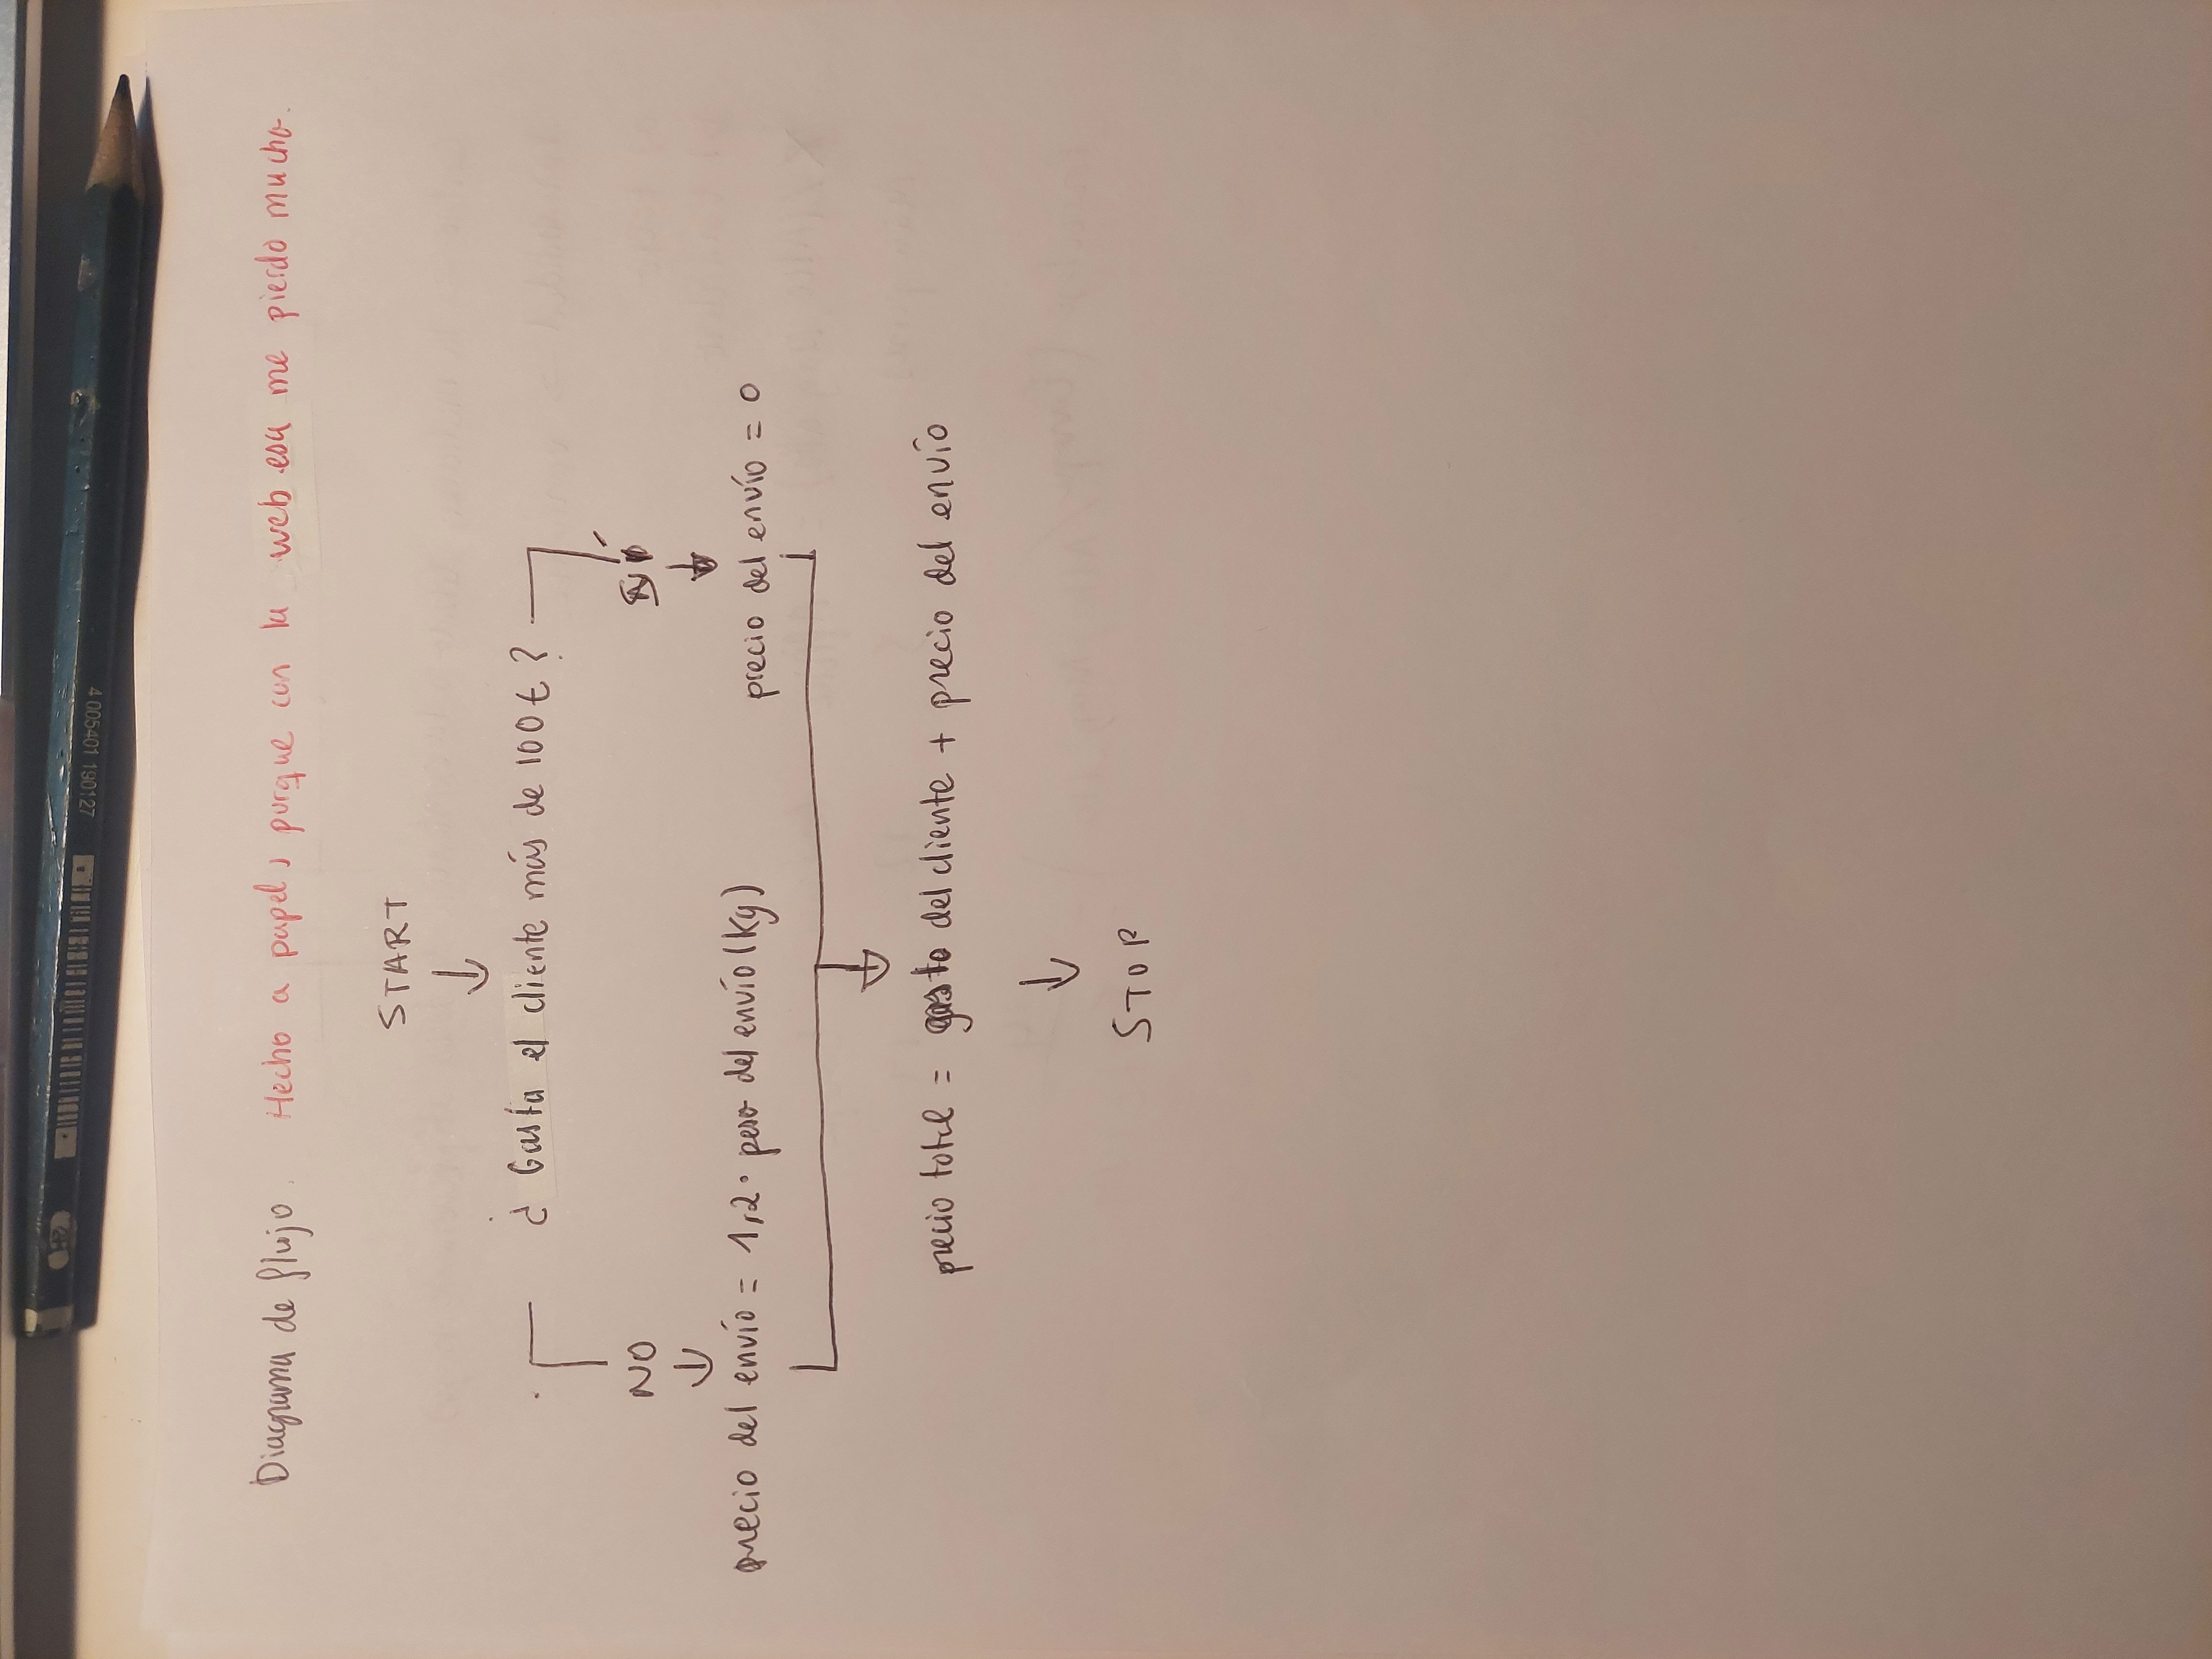 4 005401 190127
Diagrama de flujo. Hecho a papel, porque con la web esa me pierdo mucho.
START
¿Gasta el cliente más de 100€?
NO
SÍ
precio del envío = 1,2 · peso del envío (Kg)
precio del envío = 0
precio total = gasto del cliente + precio del envío
STOP